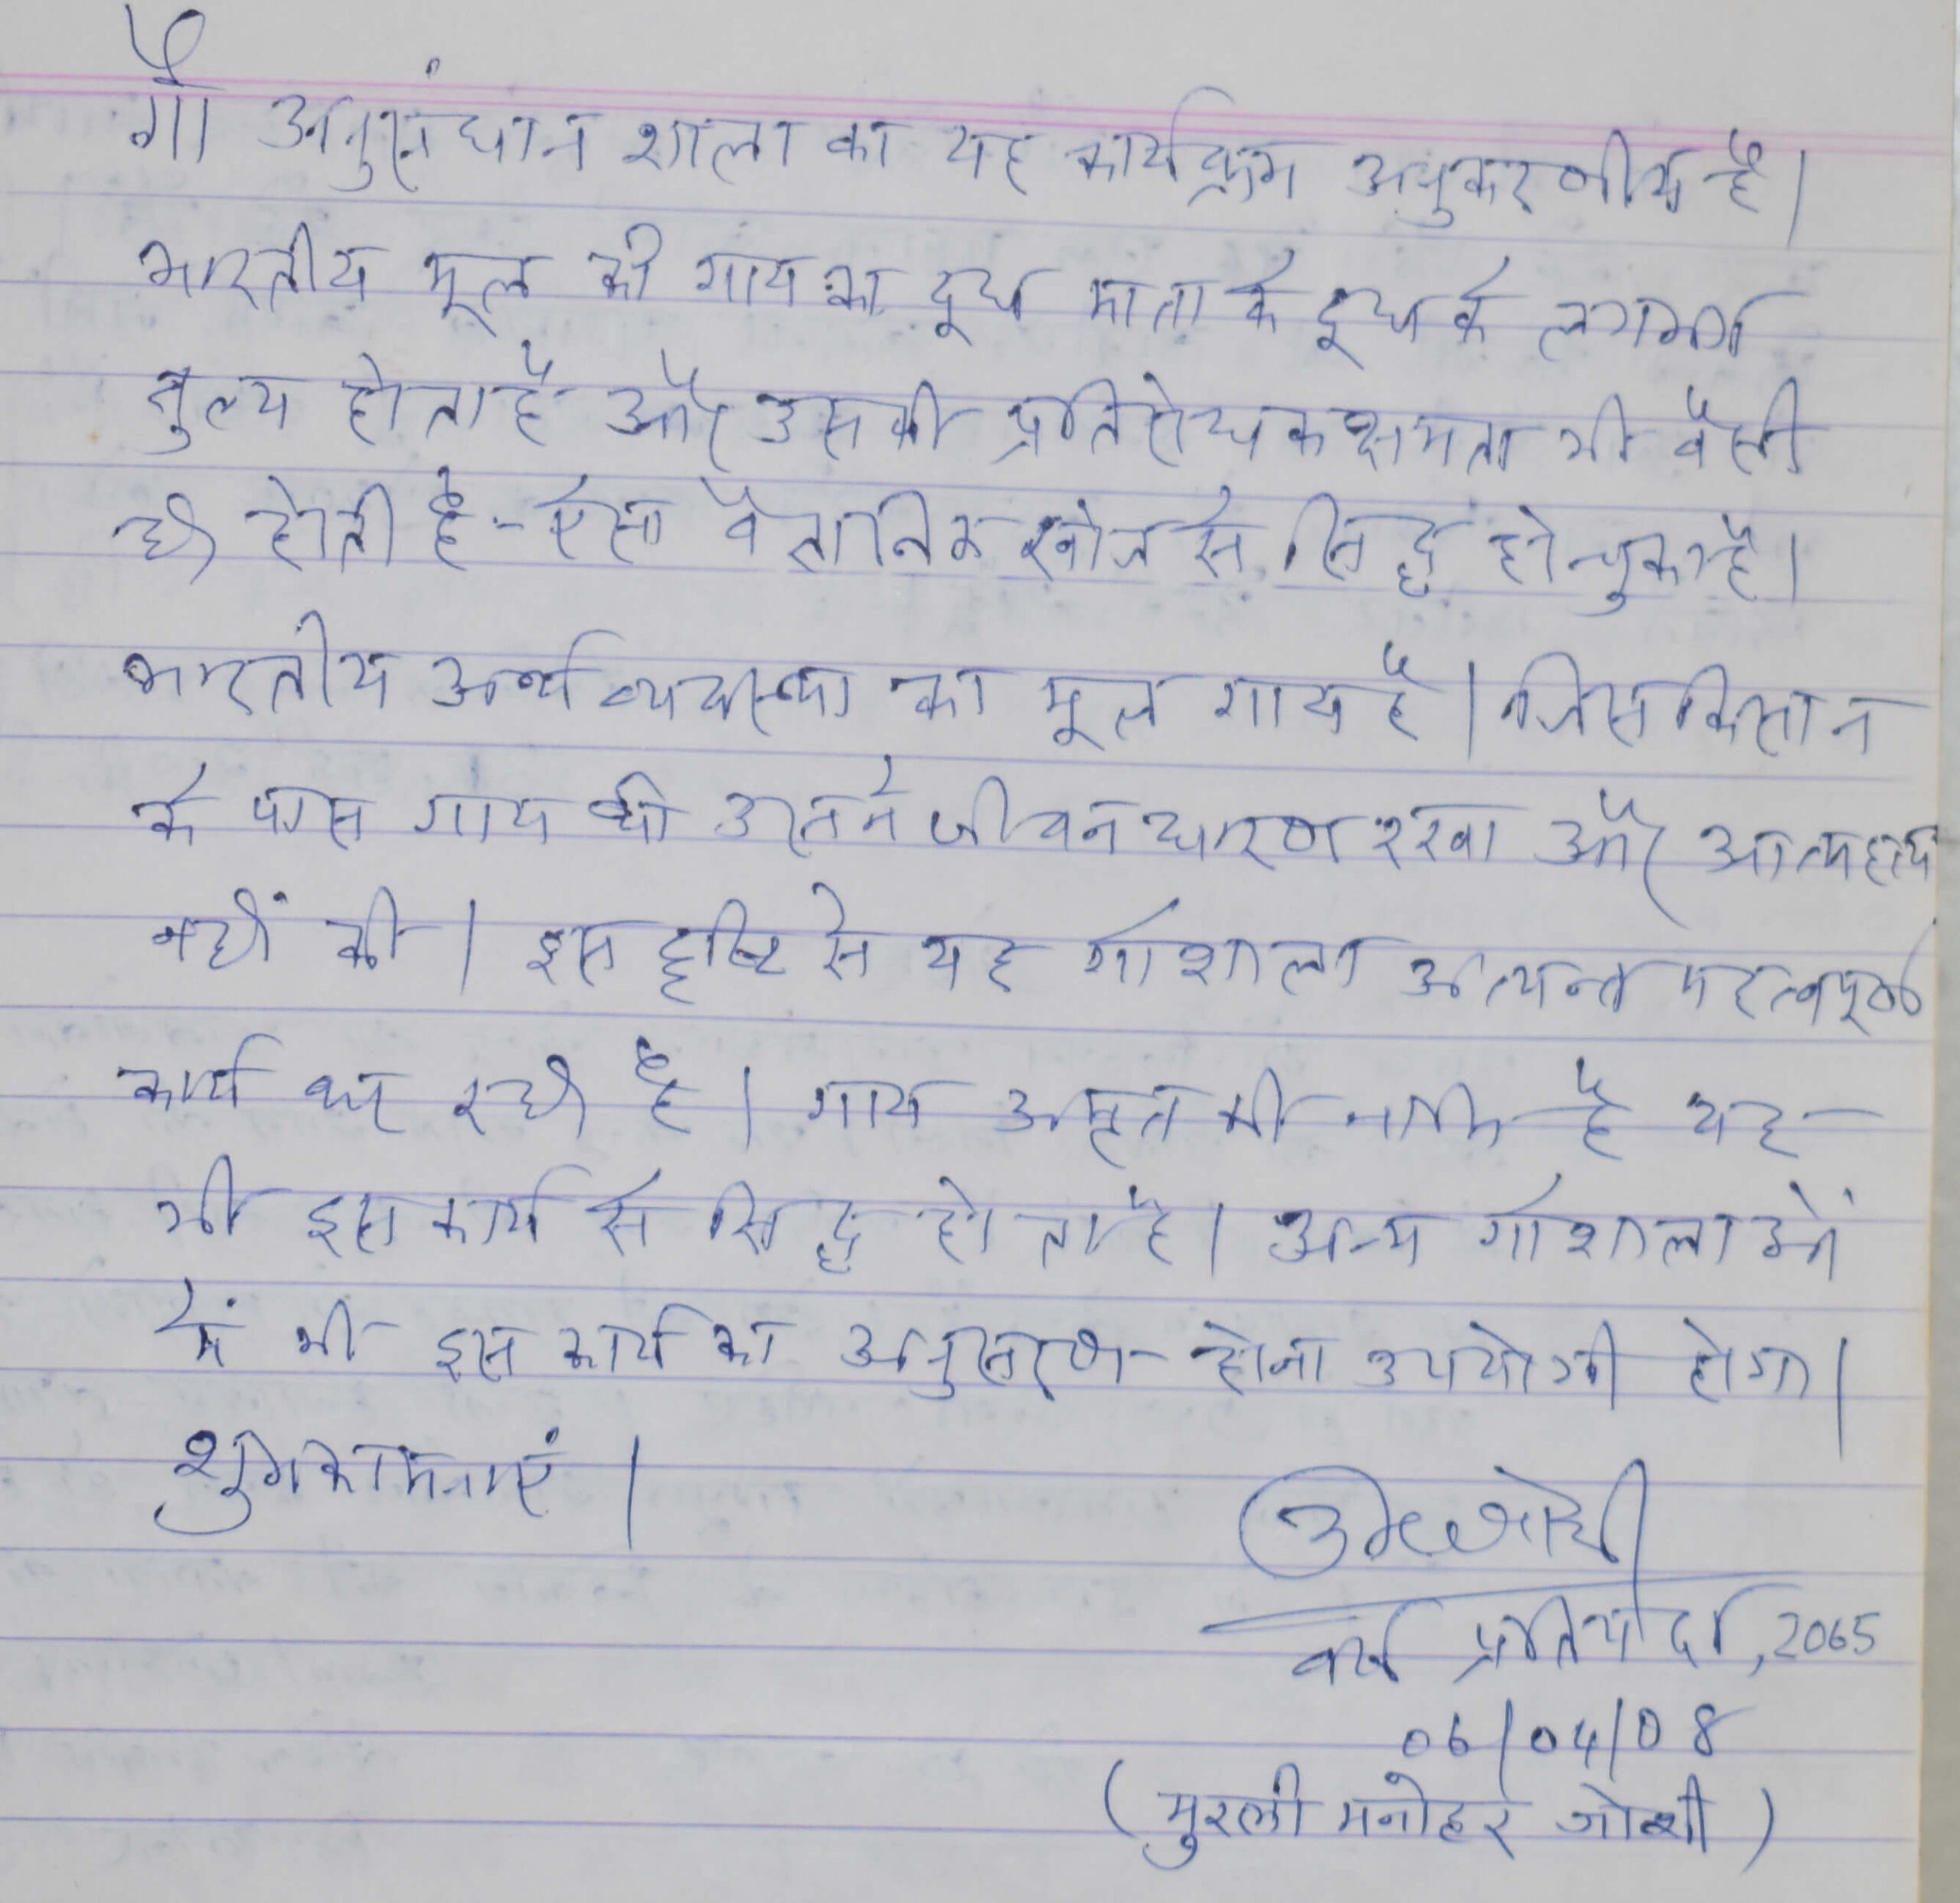 गौ अनुसंधान शाला का यह कार्यक्रम अनुकरणीय है।
भारतीय मूल की गाय का दूध माता के दूध के लगभग
तुल्य होता है और उसकी प्रतिरोधक क्षमता भी वैसी
ही होती है - ऐसा वैज्ञानिक खोज से सिद्ध हो चुका है।
भारतीय अर्थ व्यवस्था का मूल गाय है। जिस किसान
के पास गाय थी उसने जीवन धारण रखा और आत्महत्या
नहीं की। इस दृष्टि से यह गोशाला अत्यन्त महत्वपूर्ण
कार्य कर रही है। गाय अमृत की है यह
भी इस कार्य से सिद्ध होता है। अन्य गोशालाओं
में भी इस कार्य का अनुसरण होना उपयोगी होगा।
शुभकामनाएं।
वर्ष प्रतिपदा, 2065
06/04/08
(मुरली मनोहर जोशी)